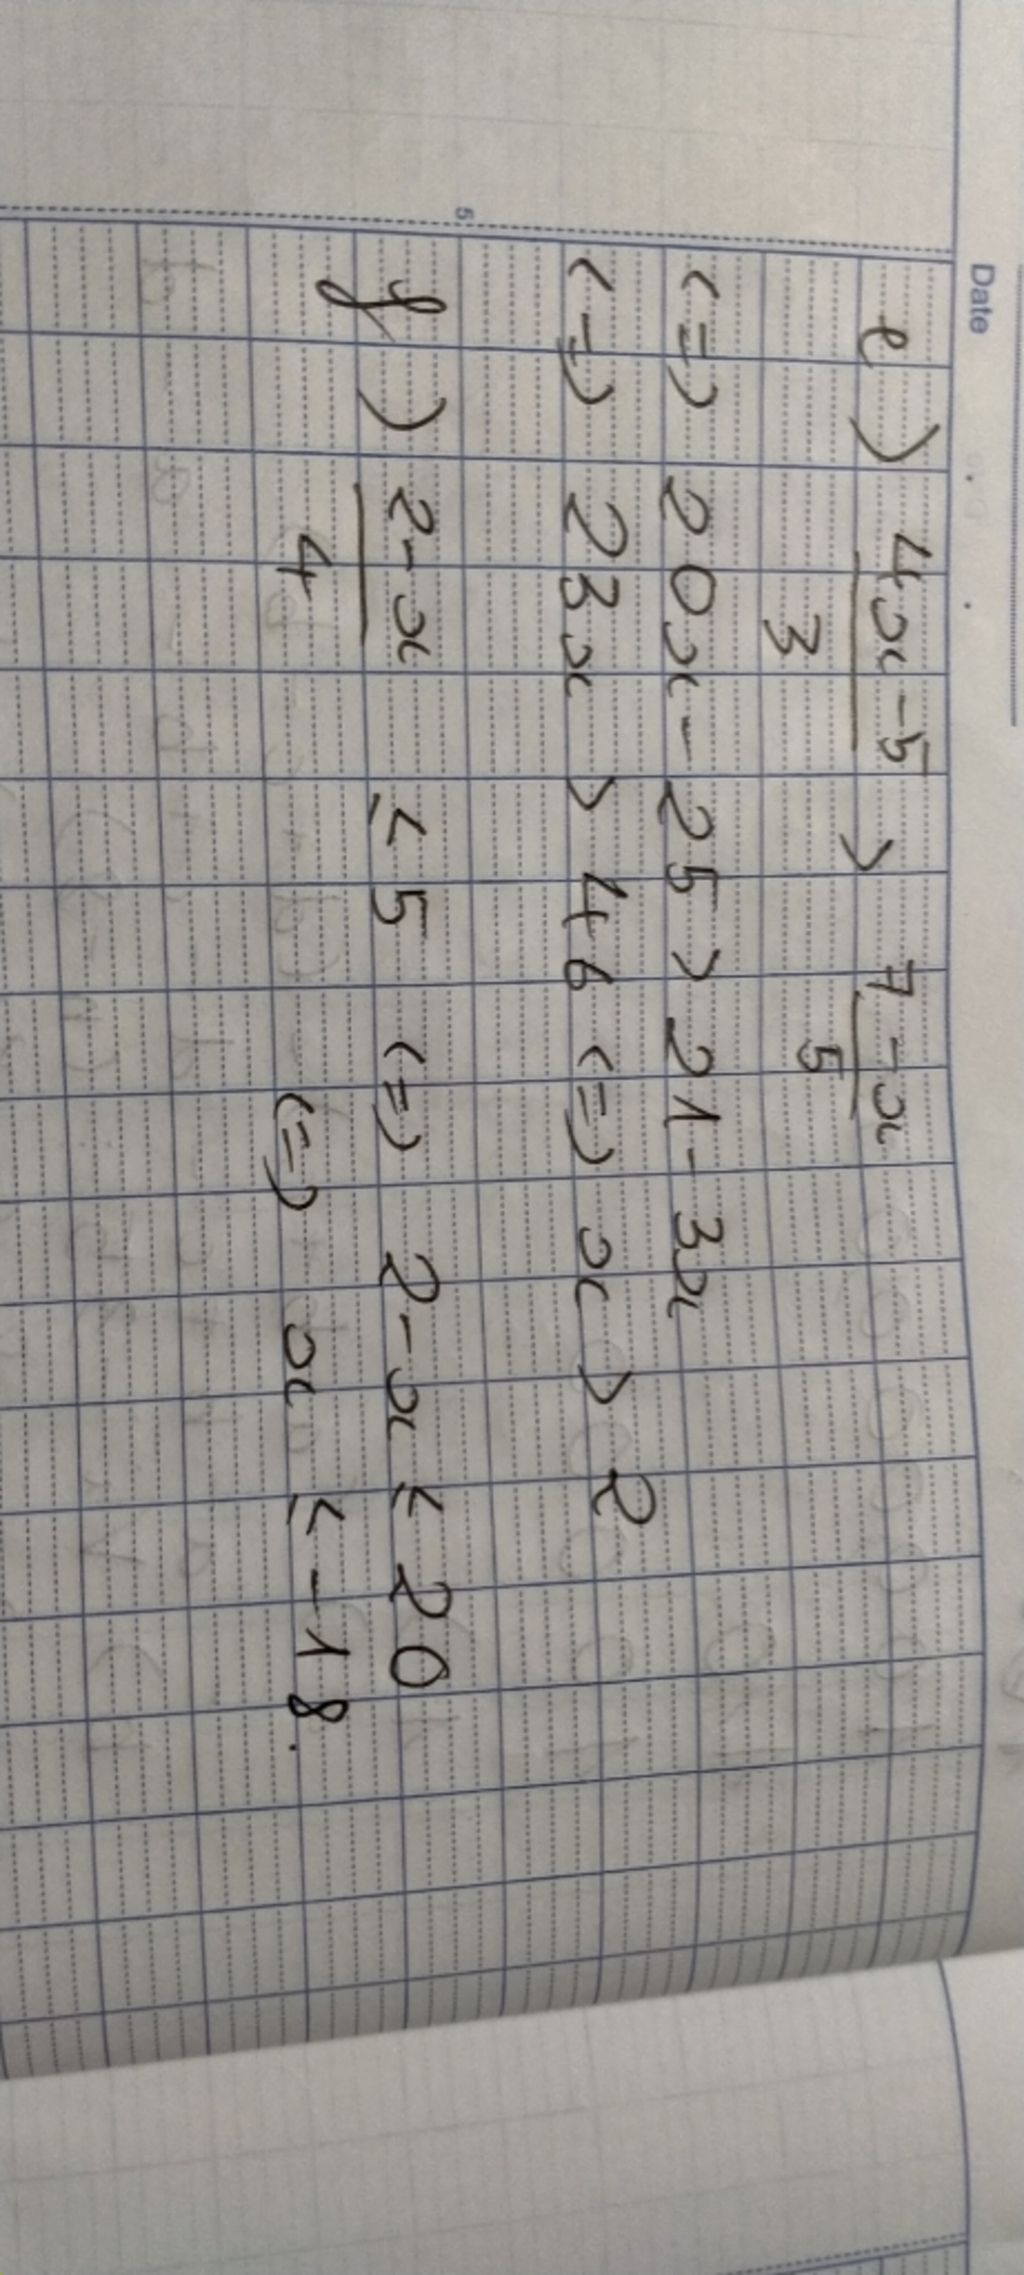 Date
e) 4x-5 > 7-x
3 5
<=> 20x - 25 > 21 - 3x
<=> 23x > 46 <=> x > 2
5
f) 2-x ≤ 5 <=> 2-x ≤ 20
4 <=> x ≤ -18.